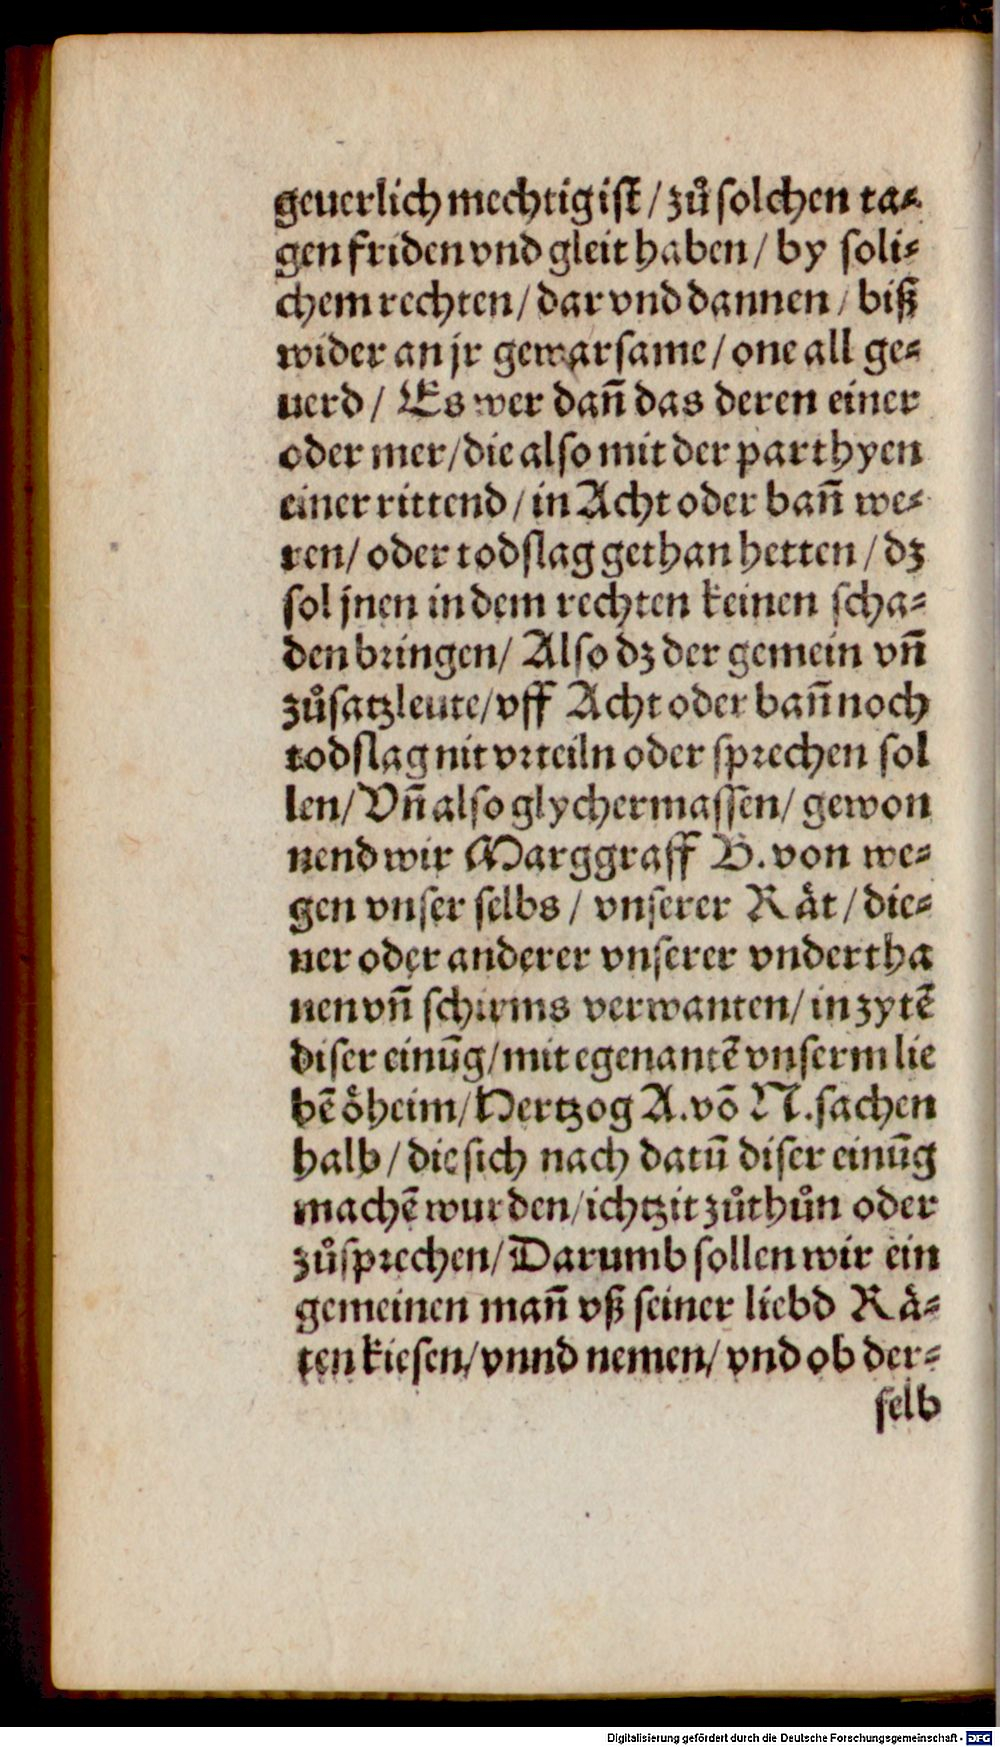 geuerlich mechtig ist / zů solchen ta⸗
gen friden vnd gleit haben / by soli⸗
chem rechten / dar vnd dannen / biß
wider an jr gewarsame / one all ge⸗
uerd / Es wer dañ das deren einer
oder mer / die also mit der parthyen
einer rittend / in Acht oder bañ we⸗
ren / oder todslag gethan hetten / dz
sol jnen in dem rechten keinen scha⸗
den bringen / Also dz der gemein vñ
zůsatzleute / vff Acht oder bañ noch
todslag nit vrteiln oder sprechen sol
len / Vñ also glychermassen / gewon
nend wir Marggraff B. von we⸗
gen vnser selbs / vnserer Rät / die⸗
ner oder anderer vnserer vndertha
nen vñ schirms verwanten / in zytẽ
diser einũg / mit egenantẽ vnserm lie
bẽ öheim / Hertzog A. võ N. sachen
halb / die sich nach datũ diser einũg
machẽ wurden / ichtzit zůthůn oder
zůsprechen / Darumb sollen wir ein
gemeinen mañ vß seiner liebd Rä⸗
ten kiesen / vnnd nemen / vnd ob der⸗
selb
Digitalisierung gefördert durch die Deutsche Forschungsgemeinschaft - DFG